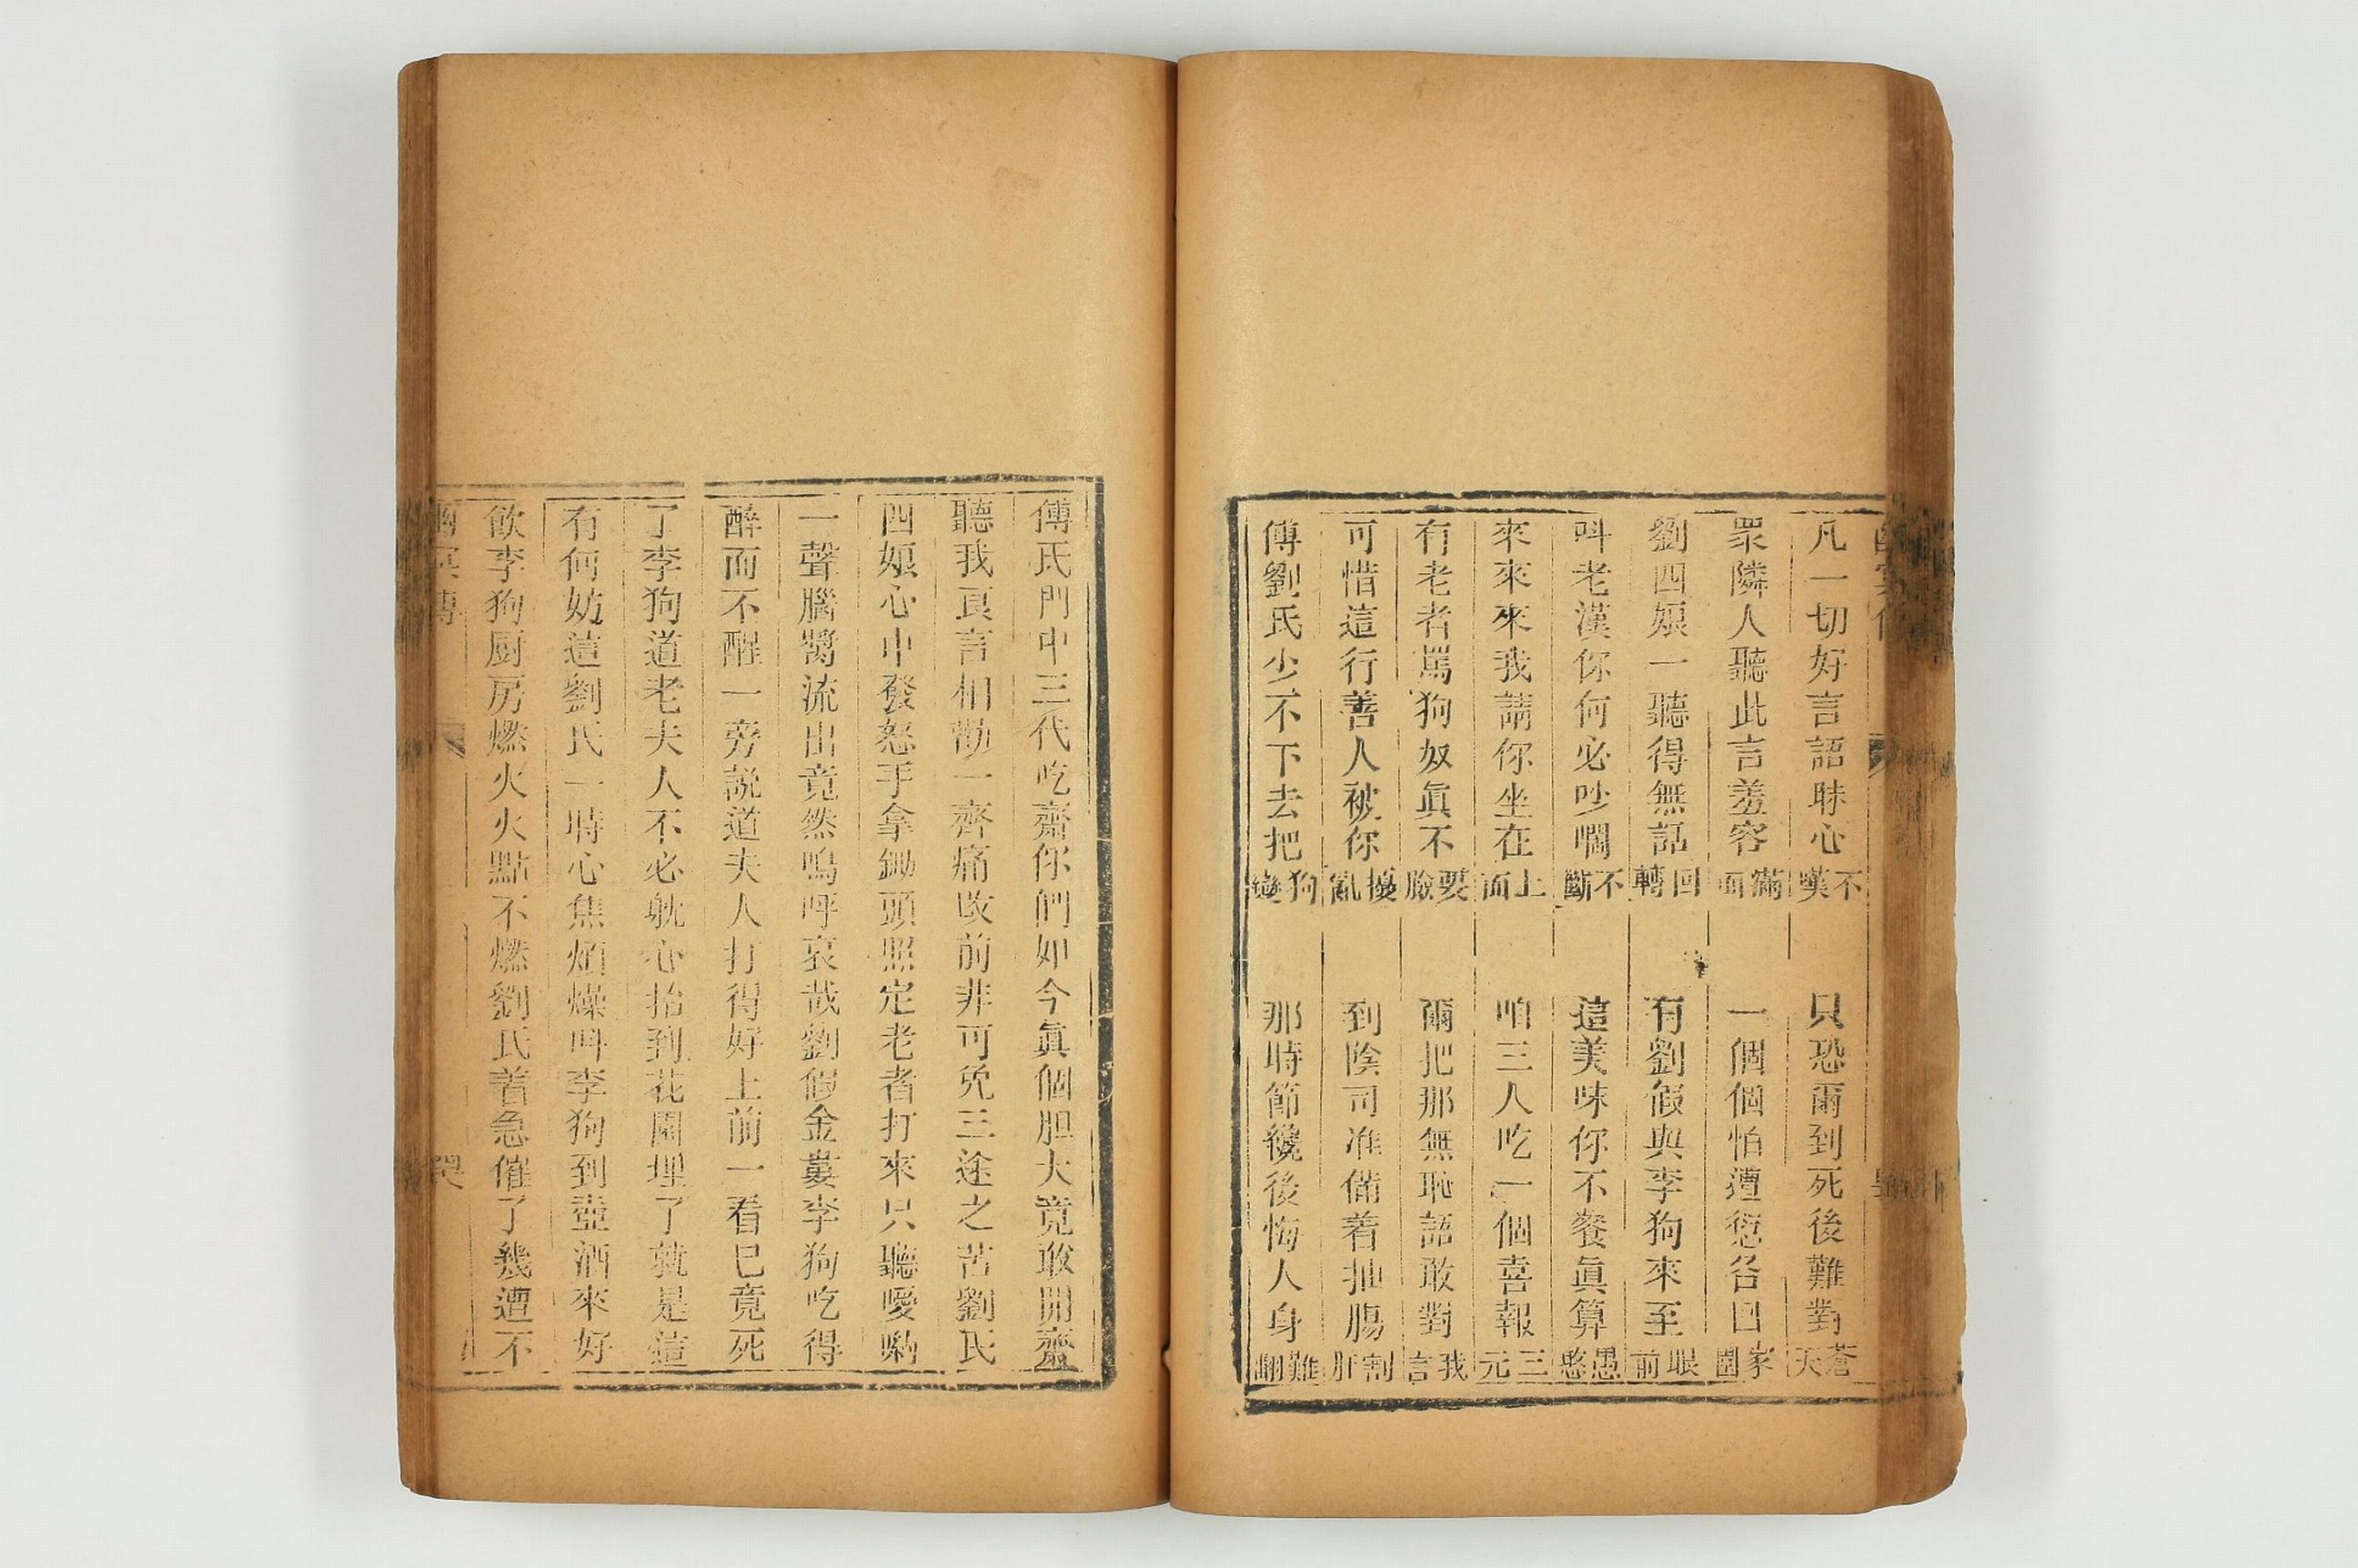 凡一切好言語昧心不嘆 只恐爾到死後難對蒼天
眾隣人聽此言羞容滿面 一個個怕遭愆各回家園
劉四娘一聽得無話回轉 有劉假與李狗來至眼前
呌老漢你何必吵嚷不斷 這美味你不飡眞算愚憨
來來來我請你坐在上面 咱三人吃一個喜報三元
有老者罵狗奴眞不要臉 爾把那無恥語敢對我言
可惜這行善人被你擾亂 到陰司准備着抽腸割肝
傅劉氏少不下去把狗變 那時節纔後悔人身難翻
傅氏門中三代吃齋你們如今眞個胆大竟敢開齋
聽我良言相勸一齊痛改前非可免三途之苦劉氏
四娘心中發怒手拿鋤頭照定老者打來只聽噯喲
一聲腦漿流出竟然嗚呼哀哉劉假金蔞李狗吃得
醉而不醒一旁説道夫人打得好上前一看巳竟死
了李狗道老夫人不必躭心抬到花園埋了就是這
有何妨這劉氏一時心焦煩燥呌李狗到壺酒來好
飲李狗厨房燃火火點不燃劉氏着急催了幾遭不
幽冥傳